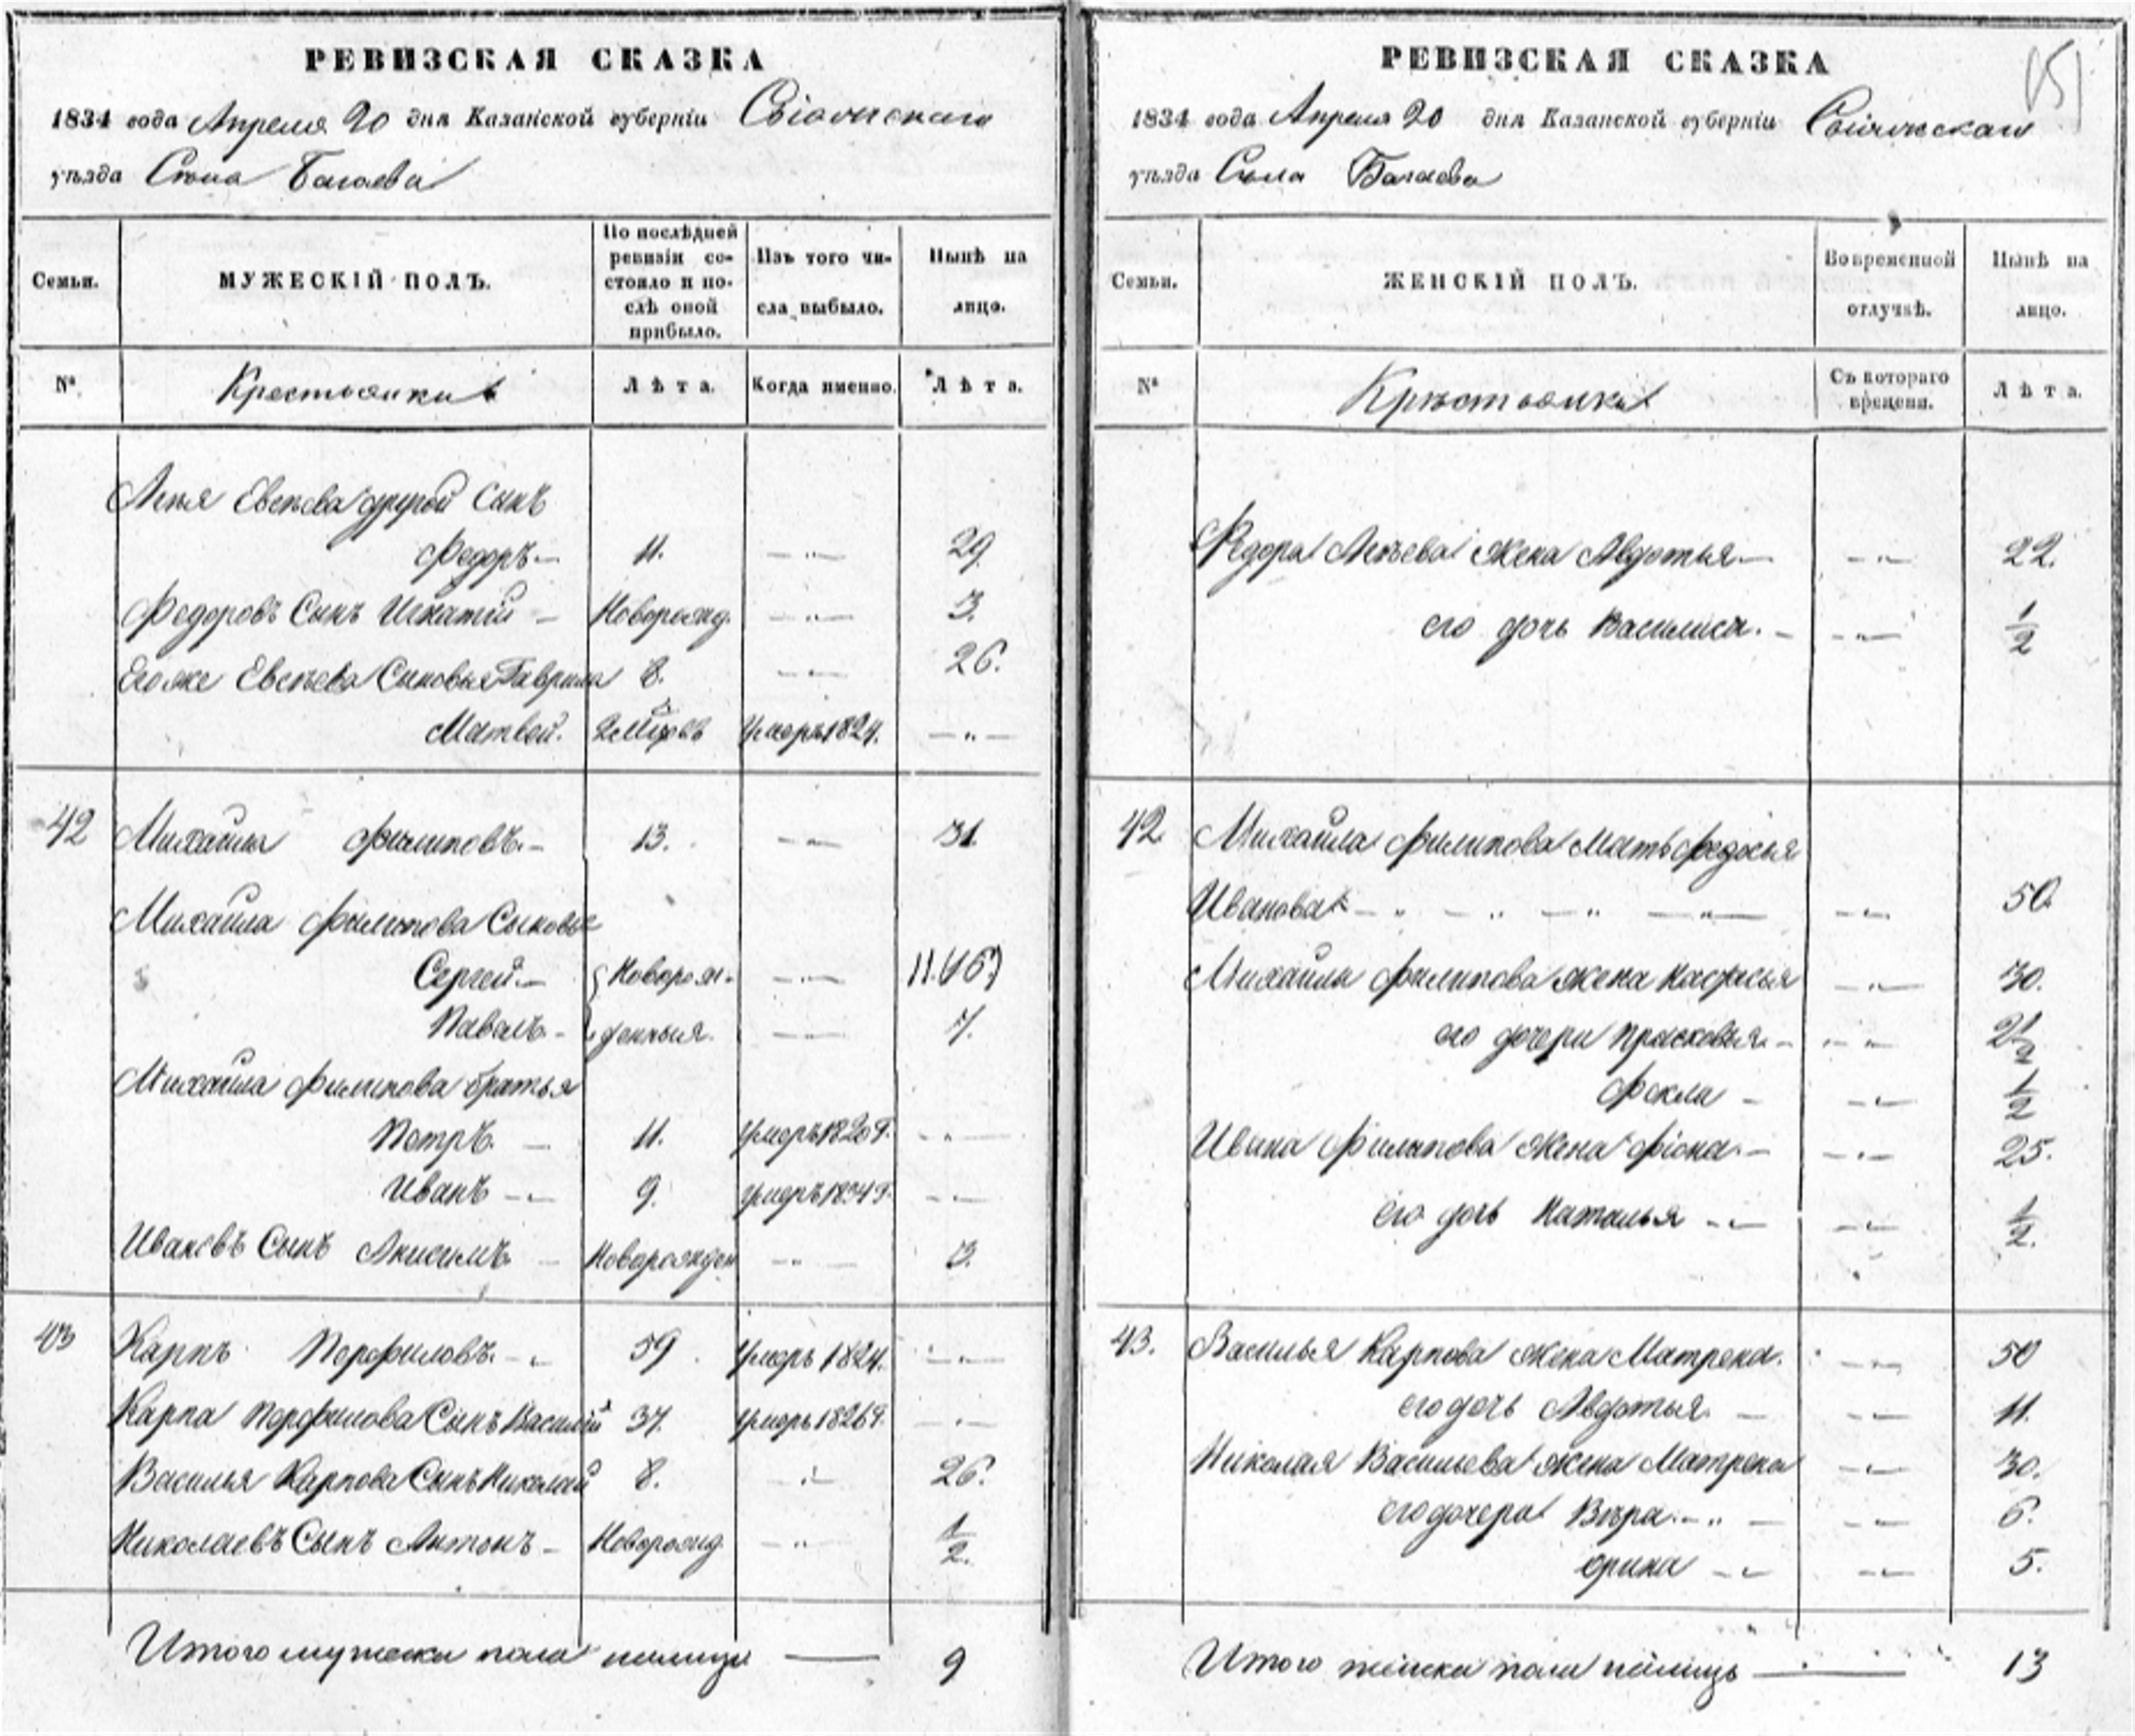 РЕВИЗСКАЯ СКАЗКА
1834 года Апреля 20 дня Казанской губерніи
уѣзда Села Багаева
Семьи. МУЖЕСКІЙ ПОЛЪ. По послѣдней ревизіи состояло и послѣ оной прибыло. Изъ того числа выбыло. Нынѣ на лицо.
№ Крестьянинъ Лѣта. Когда именно. Лѣта.
другой Сынъ
Федоръ 11. 29.
Федоровъ Сынъ Игнатій Новорожд. 3.
Егоже Сыновья Гаврила 8. 26.
Матвей. Умеръ 1824.
42 Михайла Филиповъ 13. 31.
Михайла Филипова Сыновья
Сергей Новорож- 11.
Павелъ денныя. 7.
Михайла Филипова братья
Петръ. 11. умеръ
Иванъ 9. умеръ
Ивановъ Сынъ Анисимъ Новорожден 3.
43 Карпъ Перфиловъ. 59 умеръ 1824.
Карпа Перфилова Сынъ Василий 37. умеръ 1826
Василья Карпова Сынъ Николай 8. 26.
Николаевъ Сынъ Антонъ Новорожд. 1/2.
Итого мужеска пола 9
РЕВИЗСКАЯ СКАЗКА
1834 года Апреля 20 дня Казанской губерніи
уѣзда Села Багаева
Семьи. ЖЕНСКІЙ ПОЛЪ. Во временной отлучкѣ. Нынѣ на лицо.
№ Съ котораго времени. Лѣта.
Федора жена Авдотья 22.
его дочь Василиса. 1/2
42 Михайла Филипова Мать Федосья
Иванова 50.
Михайлы Филипова жена 30.
его дочери Прасковья 2 1/2
Фекла 1/2
Ивана Филипова жена Фіона 25.
его дочь Наталья 1/2.
43. Василья Карпова жена Матрена. 50
его дочь Авдотья 11.
Николая Васильева жена Матрена 30.
его дочери Вѣра. 6.
Ирина 5.
Итого женска пола 13